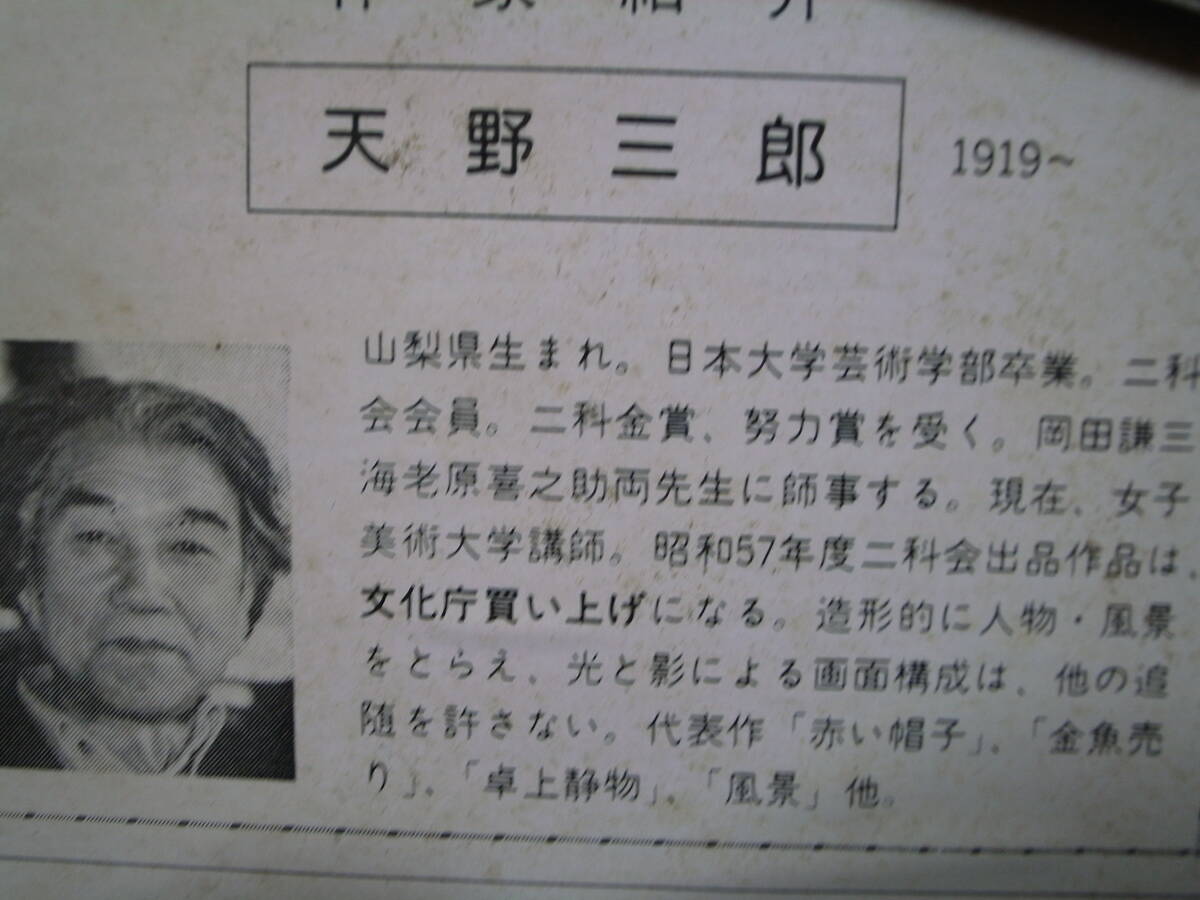 作家紹介
天野三郎 1919~
山梨県生まれ。日本大学芸術学部卒業。二科
会会員。二科金賞、努力賞を受く。岡田謙三
海老原喜之助両先生に師事する。現在、女子
美術大学講師。昭和57年度二科会出品作品は、
文化庁買い上げになる。造形的に人物・風景
をとらえ、光と影による画面構成は、他の追
随を許さない。代表作「赤い帽子」、「金魚売
り」、「卓上静物」、「風景」他。